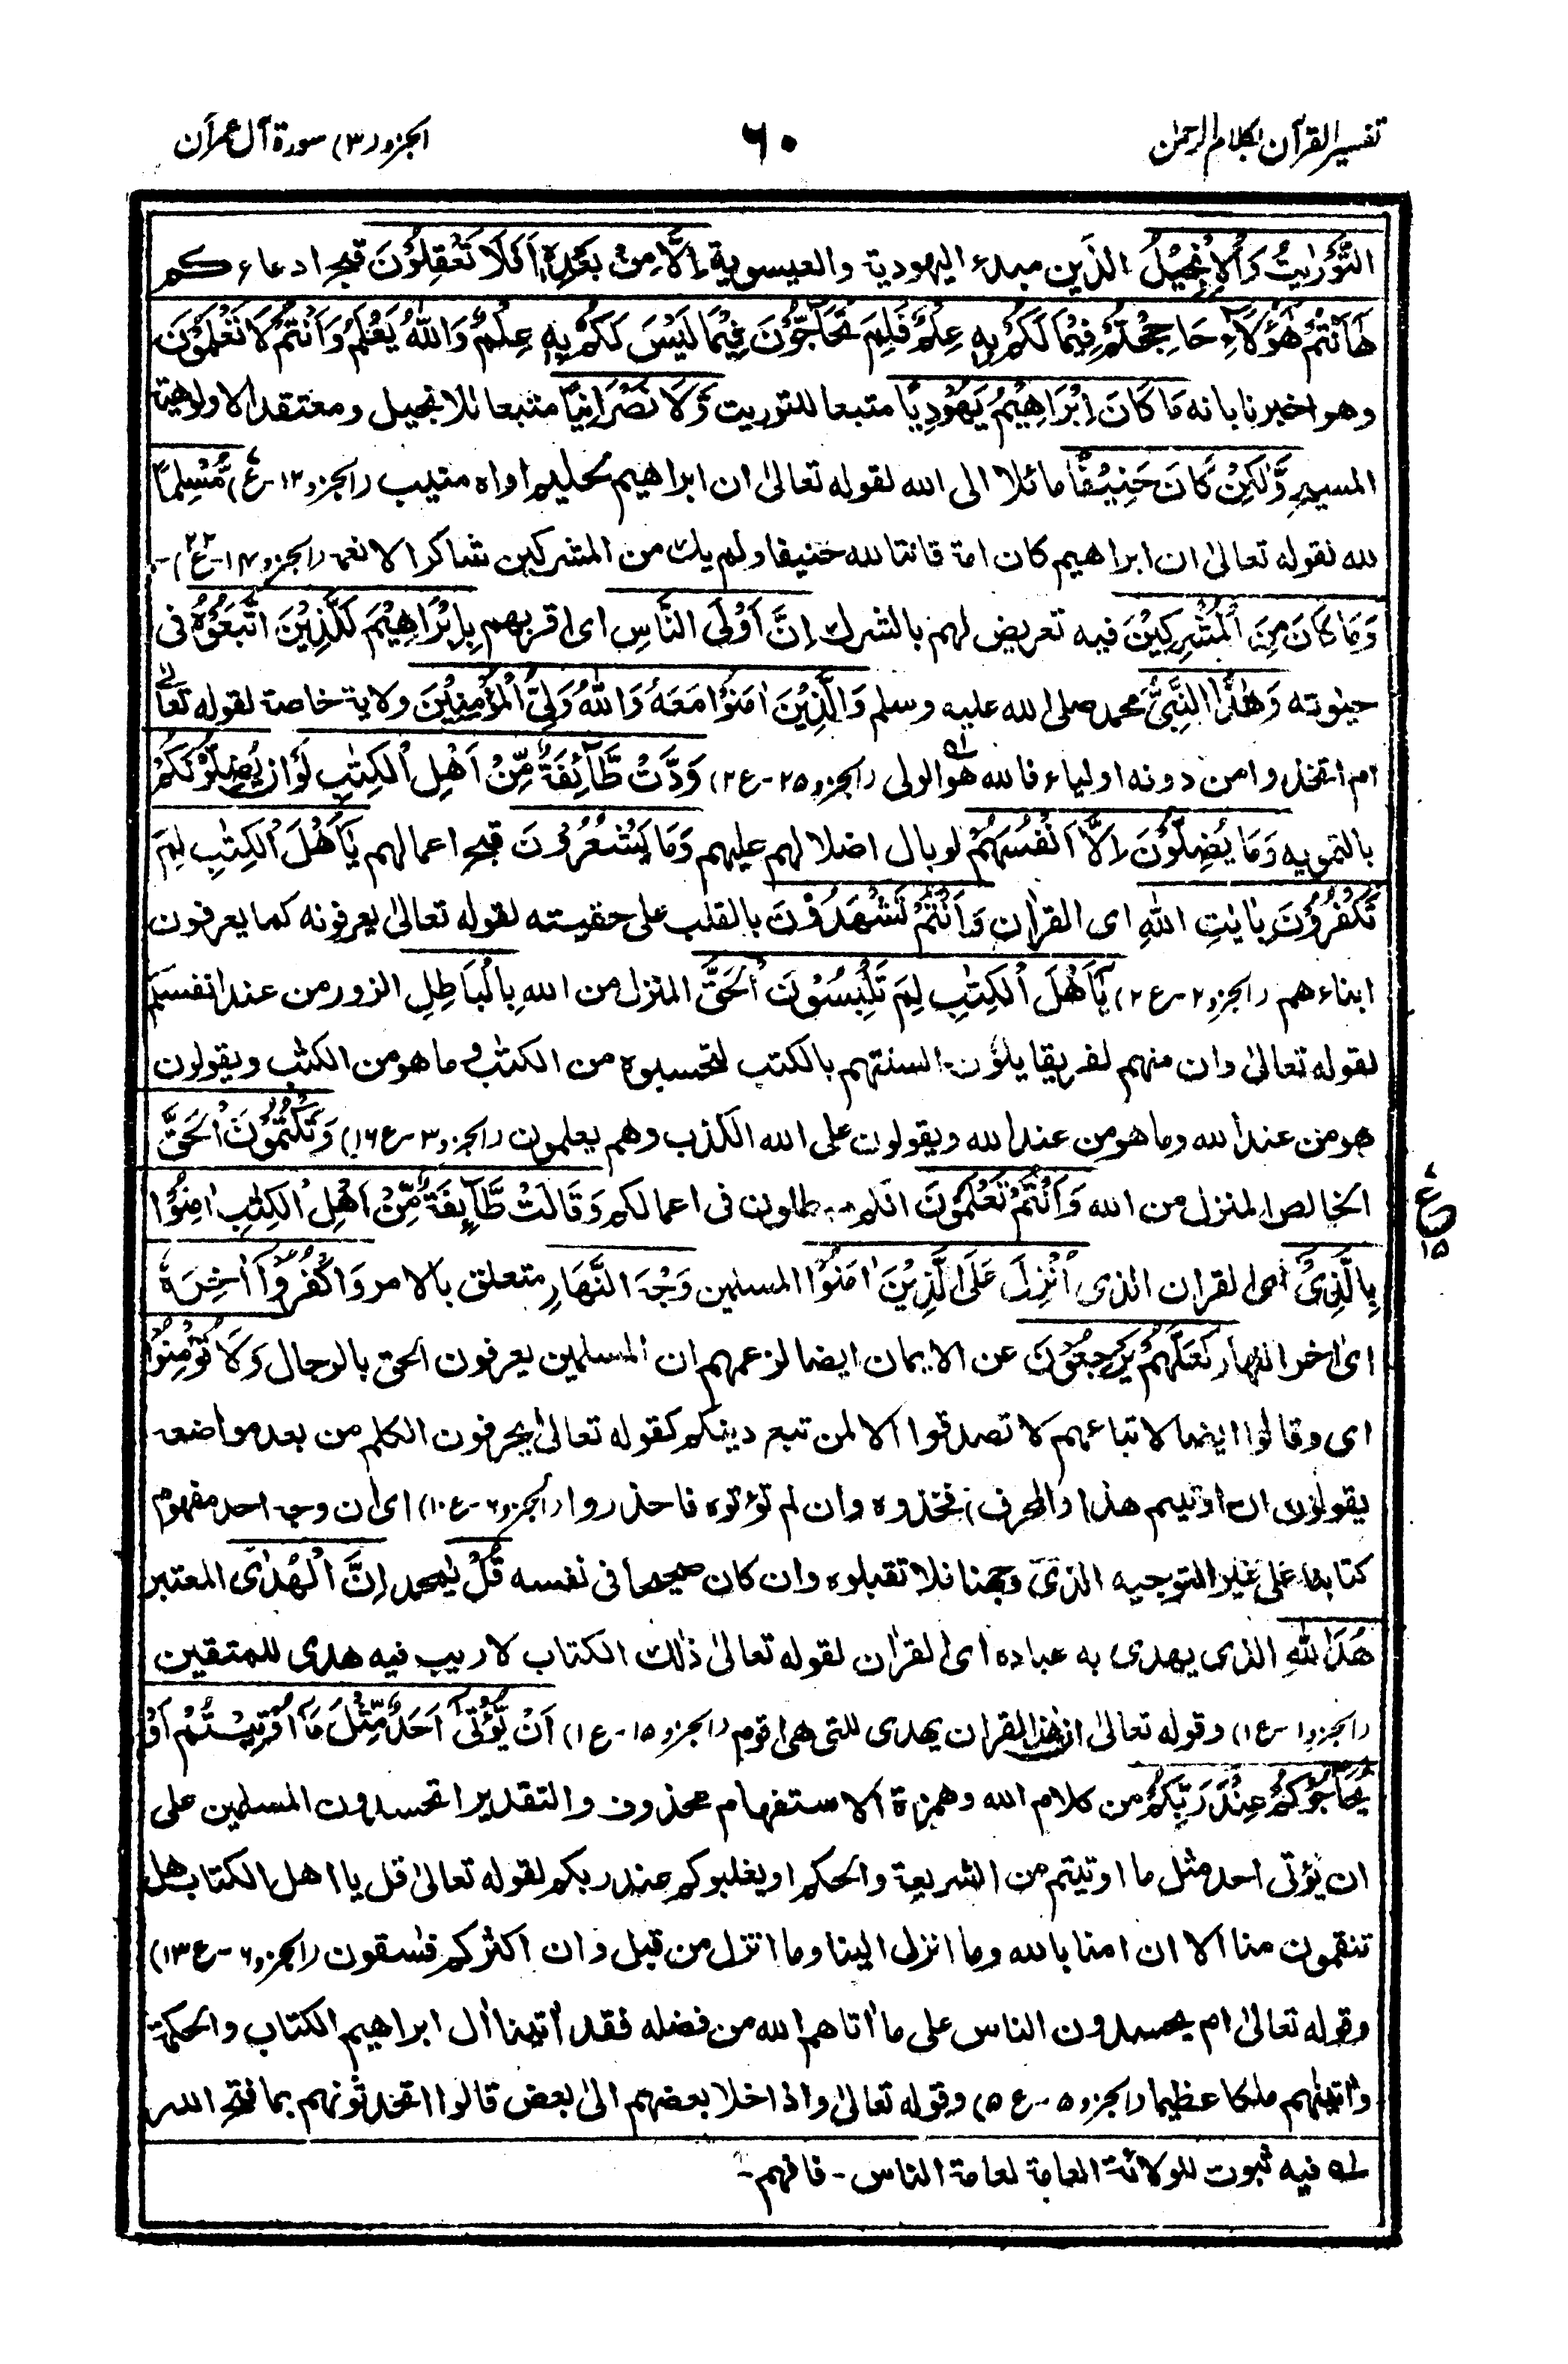 تفسير القرآن بكلام الرحمن
٦٠
الجزو (٣) سورة آل عمران
التَّوْرٰىةُ وَالْاِنْجِيْلُ الذَين مبدء اليهودية والعيسوية اِلَّا مِنْ بَعْدِهٖ اَفَلَا تَعْقِلُوْنَ قبح ادعاءكم
هٰٓاَنْتُمْ هٰٓؤُلَآءِ حَاجَجْتُمْ فِيْمَا لَكُمْ بِهٖ عِلْمٌ فَلِمَ تُحَآجُّوْنَ فِيْمَا لَيْسَ لَكُمْ بِهٖ عِلْمٌ وَاللّٰهُ يَعْلَمُ وَاَنْتُمْ لَا تَعْلَمُوْنَ
وهو اخبرنا بانه مَا كَانَ اِبْرَاهِيْمُ يَهُوْدِيًّا متبعا للتوريت وَّلَا نَصْرَانِيًّا متبعا للانجيل ومعتقد الاولوهية
المسيح وَّلٰكِنْ كَانَ حَنِيْفًا مائلا الى الله لقوله تعالىٰ ان ابراهيم لحليم اواه منيب (الجزو ١٢-ع) مُّسْلِمًا
لله لقوله تعالىٰ ان ابراهيم كان امة قانتا لله حنيفا ولم يك من المشركين شاكرا لانعمه (الجزو ١٤-ع٢٢)-
وَمَا كَانَ مِنَ الْمُشْرِكِيْنَ فيه تعريض لهم بالشرك اِنَّ اَوْلَى النَّاسِ اى اقربهم بِاِبْرَاهِيْمَ لَلَّذِيْنَ اتَّبَعُوْهُ فى
حيٰوته وَهٰذَا النَّبِىُّ محمد صلى الله عليه وسلم وَالَّذِيْنَ اٰمَنُوْا مَعَهٗ وَاللّٰهُ وَلِىُّ الْمُؤْمِنِيْنَ ولاية خاصة لقوله تعالىٰ
ام اتخذوا من دونه اولياء فالله هو الولى (الجزو ٢٥-ع٢) وَدَّتْ طَّآئِفَةٌ مِّنْ اَهْلِ الْكِتٰبِ لَوْ يُضِلُّوْنَكُمْ
بالتمويه وَمَا يُضِلُّوْنَ اِلَّآ اَنْفُسَهُمْ لوبال اضلالهم عليهم وَمَا يَشْعُرُوْنَ قبح اعمالهم يٰٓاَهْلَ الْكِتٰبِ لِمَ
تَكْفُرُوْنَ بِاٰيٰتِ اللّٰهِ اى القراٰن وَاَنْتُمْ تَشْهَدُوْنَ بالقلب على حقيته لقوله تعالىٰ يعرفونه كما يعرفون
ابناءهم (الجزو ٢-ع٢) يٰٓاَهْلَ الْكِتٰبِ لِمَ تَلْبِسُوْنَ الْحَقَّ المنزل من الله بِالْبَاطِلِ الزور من عند انفسكم
لقوله تعالىٰ وان منهم لفريقا يلوٗن السنتهم بالكتب لتحسبوه من الكتٰب وما هو من الكتٰب ويقولون
هو من عند الله وما هو من عند الله ويقولون على الله الكذب وهم يعلمون (الجزو ٣-ع١٦) وَتَكْتُمُوْنَ الْحَقَّ
الخالص المنزل من الله وَاَنْتُمْ تَعْلَمُوْنَ انكم فى اعمالكم وَقَالَتْ طَّآئِفَةٌ مِّنْ اَهْلِ الْكِتٰبِ اٰمِنُوْا
ع
١٥
بِالَّذِىْٓ اى القران الذى اُنْزِلَ عَلَى الَّذِيْنَ اٰمَنُوْا المسلمين وَجْهَ النَّهَارِ متعلق بالامر وَاكْفُرُوْٓا اٰخِرَهٗ
اى اٰخر النهار لَعَلَّهُمْ يَرْجِعُوْنَ عن الايمان ايضا لزعمهم ان المسلمين يعرفون الحق بالرجال وَلَا تُؤْمِنُوْٓا
اى وقالوا ايضا لاتباعهم لا تصدقوا الا لمن تبع دينكم كقوله تعالىٰ يحرفون الكلم من بعد مواضعه
يقولون ان اوتيتم هذا (المحرف) فخذوه وان لم تؤتوه فاحذروا (الجزو ٦-ع١٠) اى ان وجه احد مفهوم
كتابنا على غير التوجيه الذى وجهنا فلا تقبلوه وان كان صحيحا فى نفسه قُلْ يٰمحمد اِنَّ الْهُدٰى المعتبر
هُدَى اللّٰهِ الذى يهدى به عباده اى القراٰن لقوله تعالىٰ ذٰلك الكتاب لا ريب فيه هدى للمتقين
(الجزو ١-ع١) وقوله تعالىٰ ان هذا القران يهدى للتى هى اقوم (الجزو ١٥-ع١) اَنْ يُّؤْتٰٓى اَحَدٌ مِّثْلَ مَآ اُوْتِيْتُمْ اَوْ
يُحَآجُّوْكُمْ عِنْدَ رَبِّكُمْ من كلام الله وهمزة الاستفهام محذوف والتقدير اتحسدون المسلمين على
ان يؤتى احد مثل ما اوتيتم من الشريعة والحكم او يغلبوكم عند ربكم لقوله تعالىٰ قل يا اهل الكتاب هل
تنقمون منا الا ان امنا بالله وما انزل الينا وما انزل من قبل وان اكثركم فٰسقون (الجزو ٦-ع١٣)
وقوله تعالىٰ ام يحسدون الناس على ما اٰتاهم الله من فضله فقد اٰتينا اٰل ابراهيم الكتاب والحكمة
واٰتينٰهم ملكا عظيما (الجزو ٥-ع٥) وقوله تعالىٰ واذا خلا بعضهم الىٰ بعض قالوا اتحدثونهم بما فتح الله
لـه فيه ثبوت للولائة العامة لعامة الناس - فافهم -